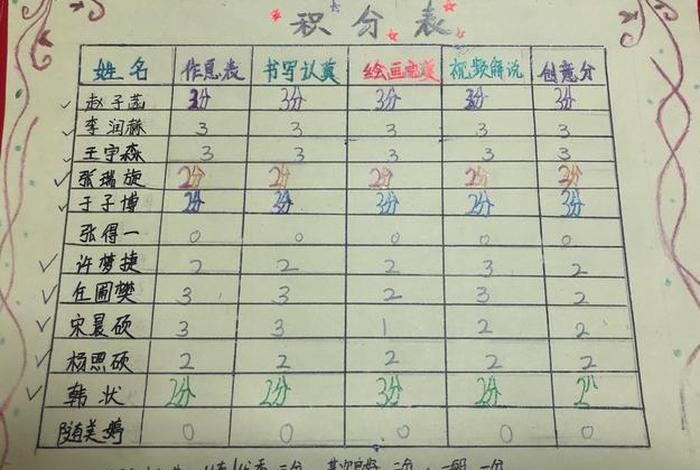 积分表
姓名 作息表 书写认真 绘画完美 视频解说 创意分
赵子菡 3分 3分 3分 3分 3分
李润赫 3 3 3 3 3
王宇森 3 3 3 3 3
张瑞旋 2分 2分 2分 2分 2分
于子博 2分 3分 3分 2分 3分
张得一 0 0 0 0 0
许梦捷 2 2 2 3 2
任圃樊 3 3 2 3 2
宋晨硕 3 3 1 2 2
杨思硕 2 2 2 2 2
韩状 2分 2分 3分 2分 2分
陆美婷 0 0 0 0 0
三分 其次良好 二分 一般 一分